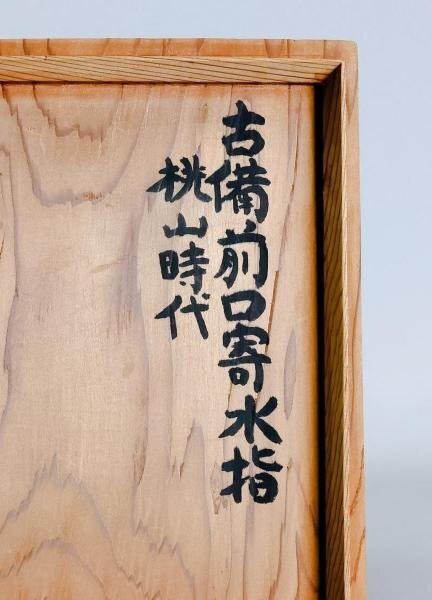 古備前口寄水指
桃山時代